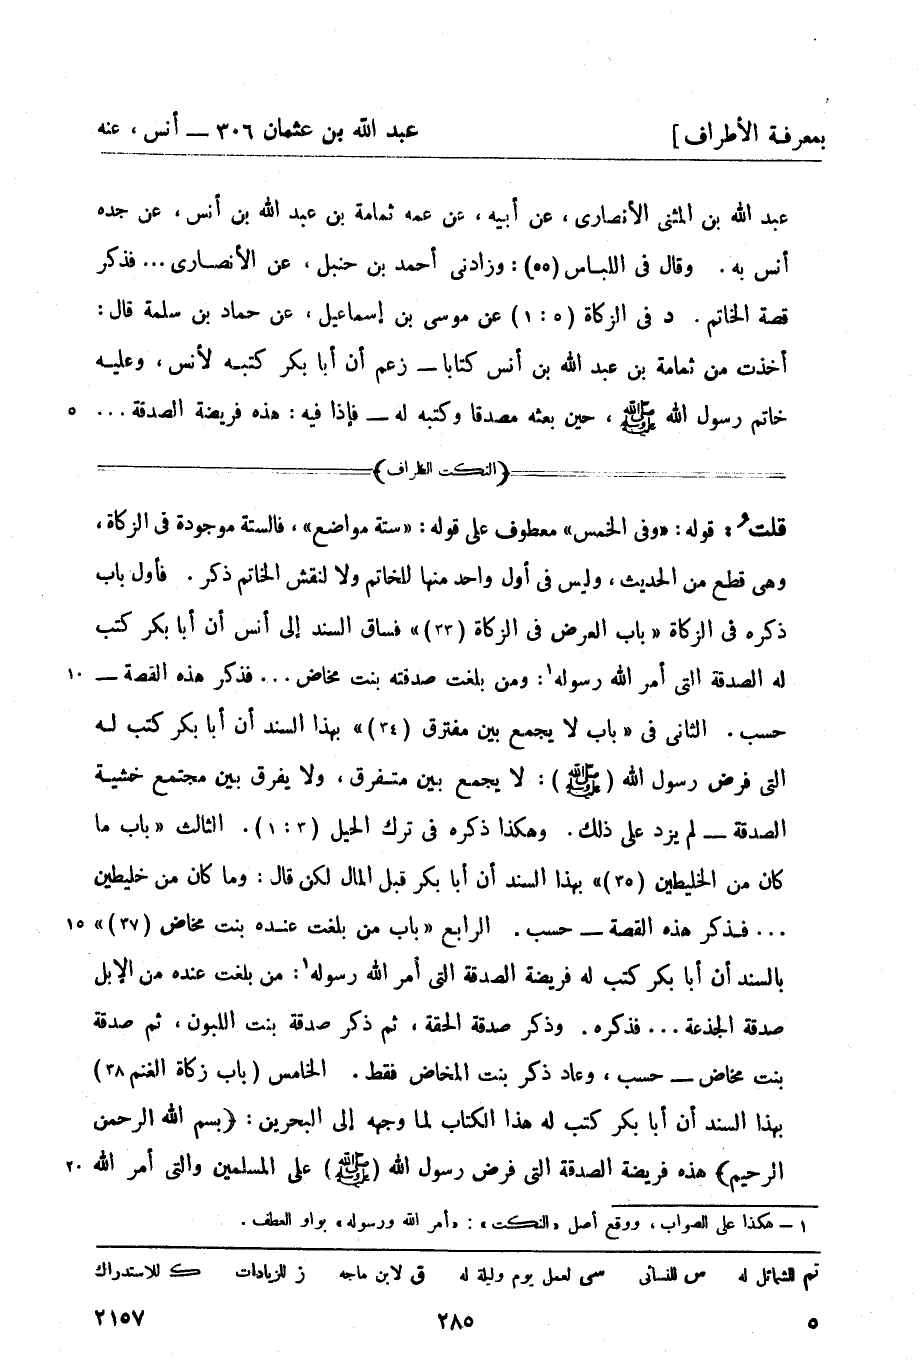 بمعرفة الأطراف] عبد الله بن عثمان ٣٠٦ — أنس ، عنه
عبد الله بن المثنى الأنصارى ، عن أبيه ، عن عمه ثمامة بن عبد الله بن أنس ، عن جده
أنس به . وقال فى اللباس (٥٥) : وزادنى أحمد بن حنبل ، عن الأنصارى ... فذكر
قصة الخاتم . د فى الزكاة (٥ : ١) عن موسى بن إسماعيل ، عن حماد بن سلمة قال :
أخذت من ثمامة بن عبد الله بن أنس كتابا — زعم أن أبا بكر كتبه لأنس ، وعليه
خاتم رسول الله ﷺ ، حين بعثه مصدقا وكتبه له — فإذا فيه : هذه فريضة الصدقة ... ٥
(النكت الظراف)
قلت : قوله : «وفى الخمس» معطوف على قوله : «ستة مواضع» ، فالستة موجودة فى الزكاة ،
وهى قطع من الحديث ، وليس فى أول واحد منها للخاتم ولا لنقش الخاتم ذكر . فأول باب
ذكره فى الزكاة « باب العرض فى الزكاة (٣٣)» فساق السند إلى أنس أن أبا بكر كتب
له الصدقة التى أمر الله رسوله١ : ومن بلغت صدقته بنت مخاض ... فذكر هذه القصة — ١٠
حسب . الثانى فى « باب لا يجمع بين مفترق (٣٤)» بهذا السند أن أبا بكر كتب له
التى فرض رسول الله (ﷺ) : لا يجمع بين متفرق ، ولا يفرق بين مجتمع خشية
الصدقة — لم يزد على ذلك . وهكذا ذكره فى ترك الحيل (٣ : ١) . الثالث « باب ما
كان من الخليطين (٣٥)» بهذا السند أن أبا بكر قبل المال لكن قال : وما كان من خليطين
... فذكر هذه القصة — حسب . الرابع «باب من بلغت عنده بنت مخاض (٣٧)» ١٥
بالسند أن أبا بكر كتب له فريضة الصدقة التى أمر الله رسوله١ : من بلغت عنده من الإبل
صدقة الجذعة ... فذكره . وذكر صدقة الحقة ، ثم ذكر صدقة بنت اللبون ، ثم صدقة
بنت مخاض — حسب ، وعاد ذكر بنت المخاض فقط . الخامس (باب زكاة الغنم ٣٨)
بهذا السند أن أبا بكر كتب له هذا الكتاب لما وجهه إلى البحرين : ﴿بسم الله الرحمن
الرحيم﴾ هذه فريضة الصدقة التى فرض رسول الله (ﷺ) على المسلمين والتى أمر الله ٢٠
١ – هكذا على الصواب ، ووقع أصل «النكت» : «أمر الله ورسوله» بواو العطف .
تم للشمائل له س للنسائى سى لعمل يوم وليلة له ق لابن ماجه ز للزيادات ك للاستدراك
٥ ٢٨٥ ٢١٥٧